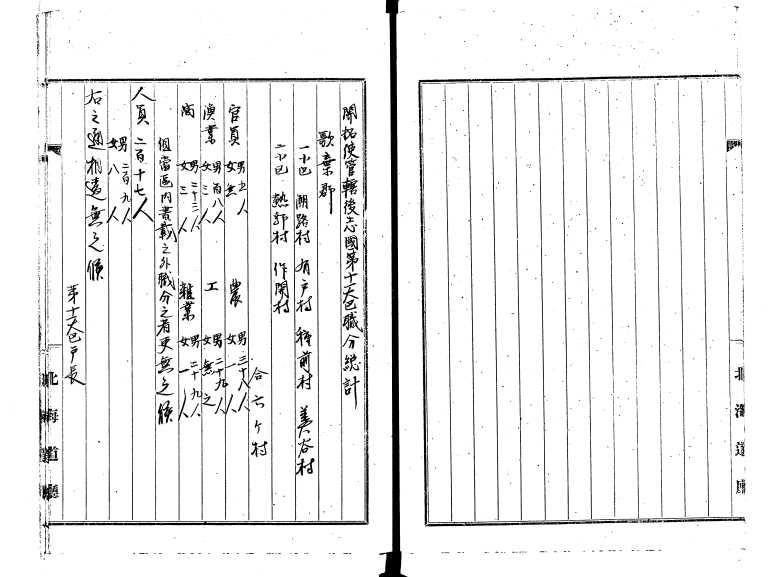 開拓使管轄後志國第十一大区職分総計
歌棄郡
一小区 潮路村 有戸村 種前村 美谷村
二小区 熱郛村 作開村
合六ケ村
官員 男 人 女無 農 男三十八人 女一人
漁業 男百八人 女三人 工 男二十九人 女無之
商 男二十三人 女三人 雑業 男二十九人 女一人
但當区内書載之外職分之者更無之候
人員 二百十七人 男二百九人 女八人
右之通相違無之候
第十一大区戸長
北海道廳
北海道廳